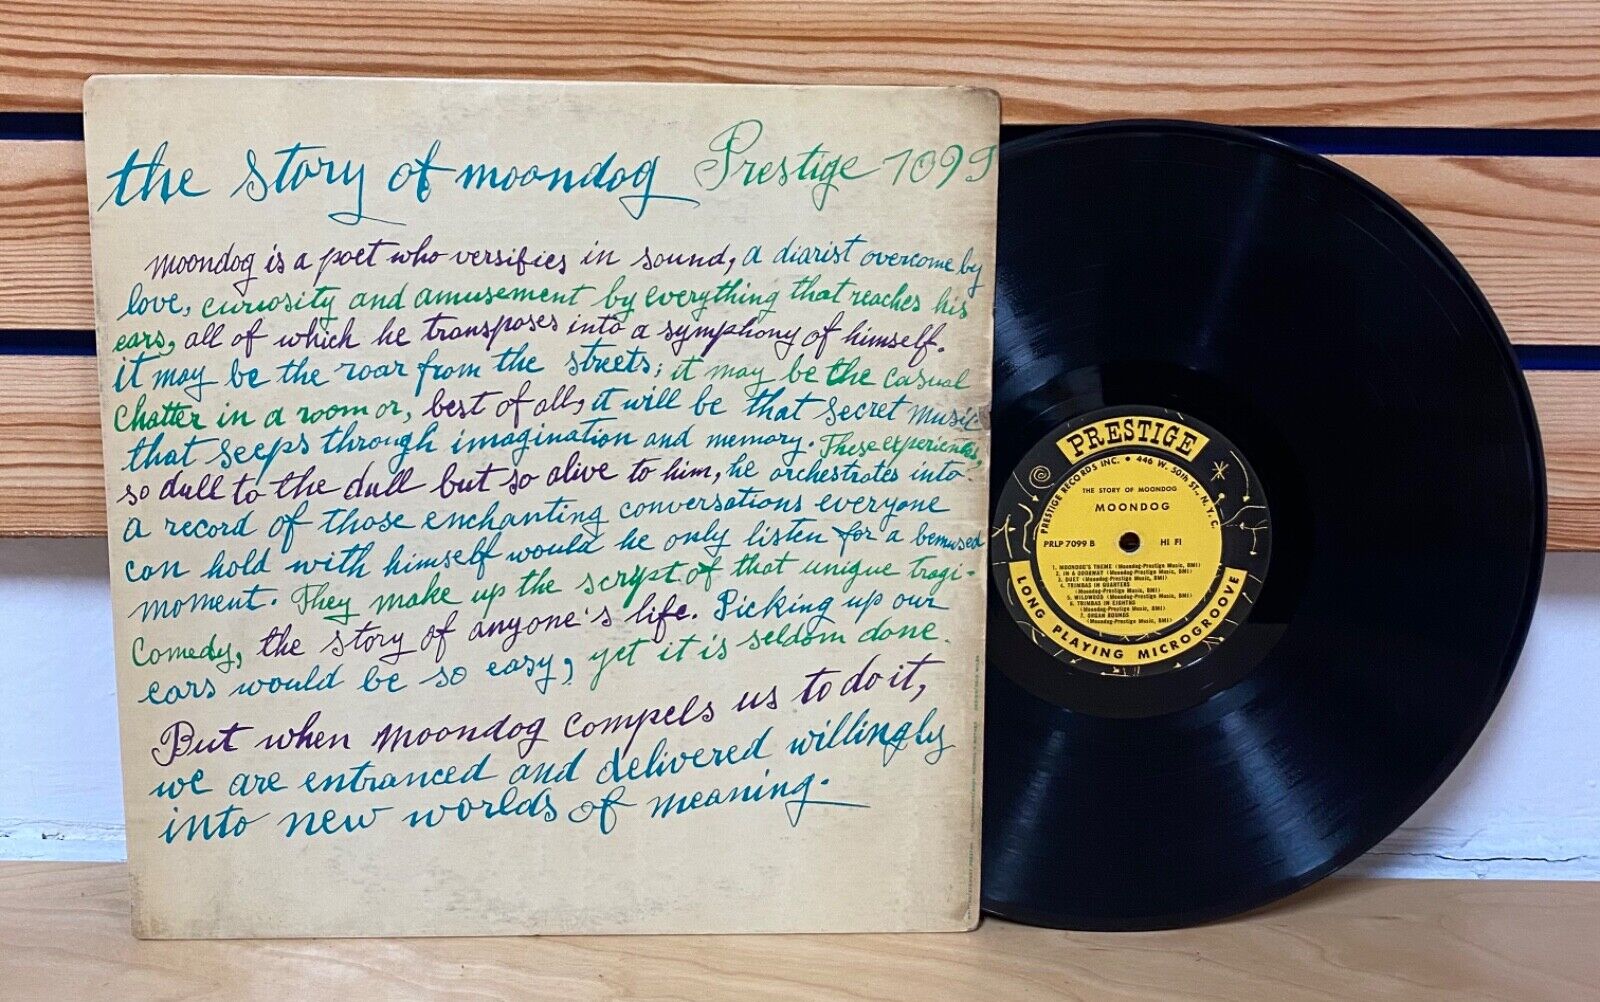 the story of moondog Prestige 7099
moondog is a poet who versifies in sound, a diarist overcome by
love, curiosity and amusement by everything that reaches his
ears, all of which he transposes into a symphony of himself.
it may be the roar from the streets; it may be the casual
Chatter in a room or, best of all, it will be that secret music
that seeps through imagination and memory. These experiences,
so dull to the dull but so alive to him, he orchestrates into
a record of those enchanting conversations everyone
can hold with himself would he only listen for a bemused
moment. They make up the script of that unique tragi-
Comedy, the story of anyone's life. Picking up our
ears would be so easy, yet it is seldom done.
But when moondog compels us to do it,
we are entranced and delivered willingly
into new worlds of meaning.
PRESTIGE
PRESTIGE RECORDS INC. • 446 W. 50th ST., N.Y.C.
THE STORY OF MOONDOG
MOONDOG
PRLP 7099 B HI FI
1. MOONDOG'S THEME (Moondog-Prestige Music, BMI)
2. IN A DOORWAY (Moondog-Prestige Music, BMI)
3. DUET (Moondog-Prestige Music, BMI)
4. TRIMBAS IN QUARTERS
(Moondog-Prestige Music, BMI)
5. WILDWOOD (Moondog-Prestige Music, BMI)
6. TRIMBAS IN EIGHTHS
(Moondog-Prestige Music, BMI)
7. ORGAN ROUNDS
(Moondog-Prestige Music, BMI)
LONG PLAYING MICROGROOVE